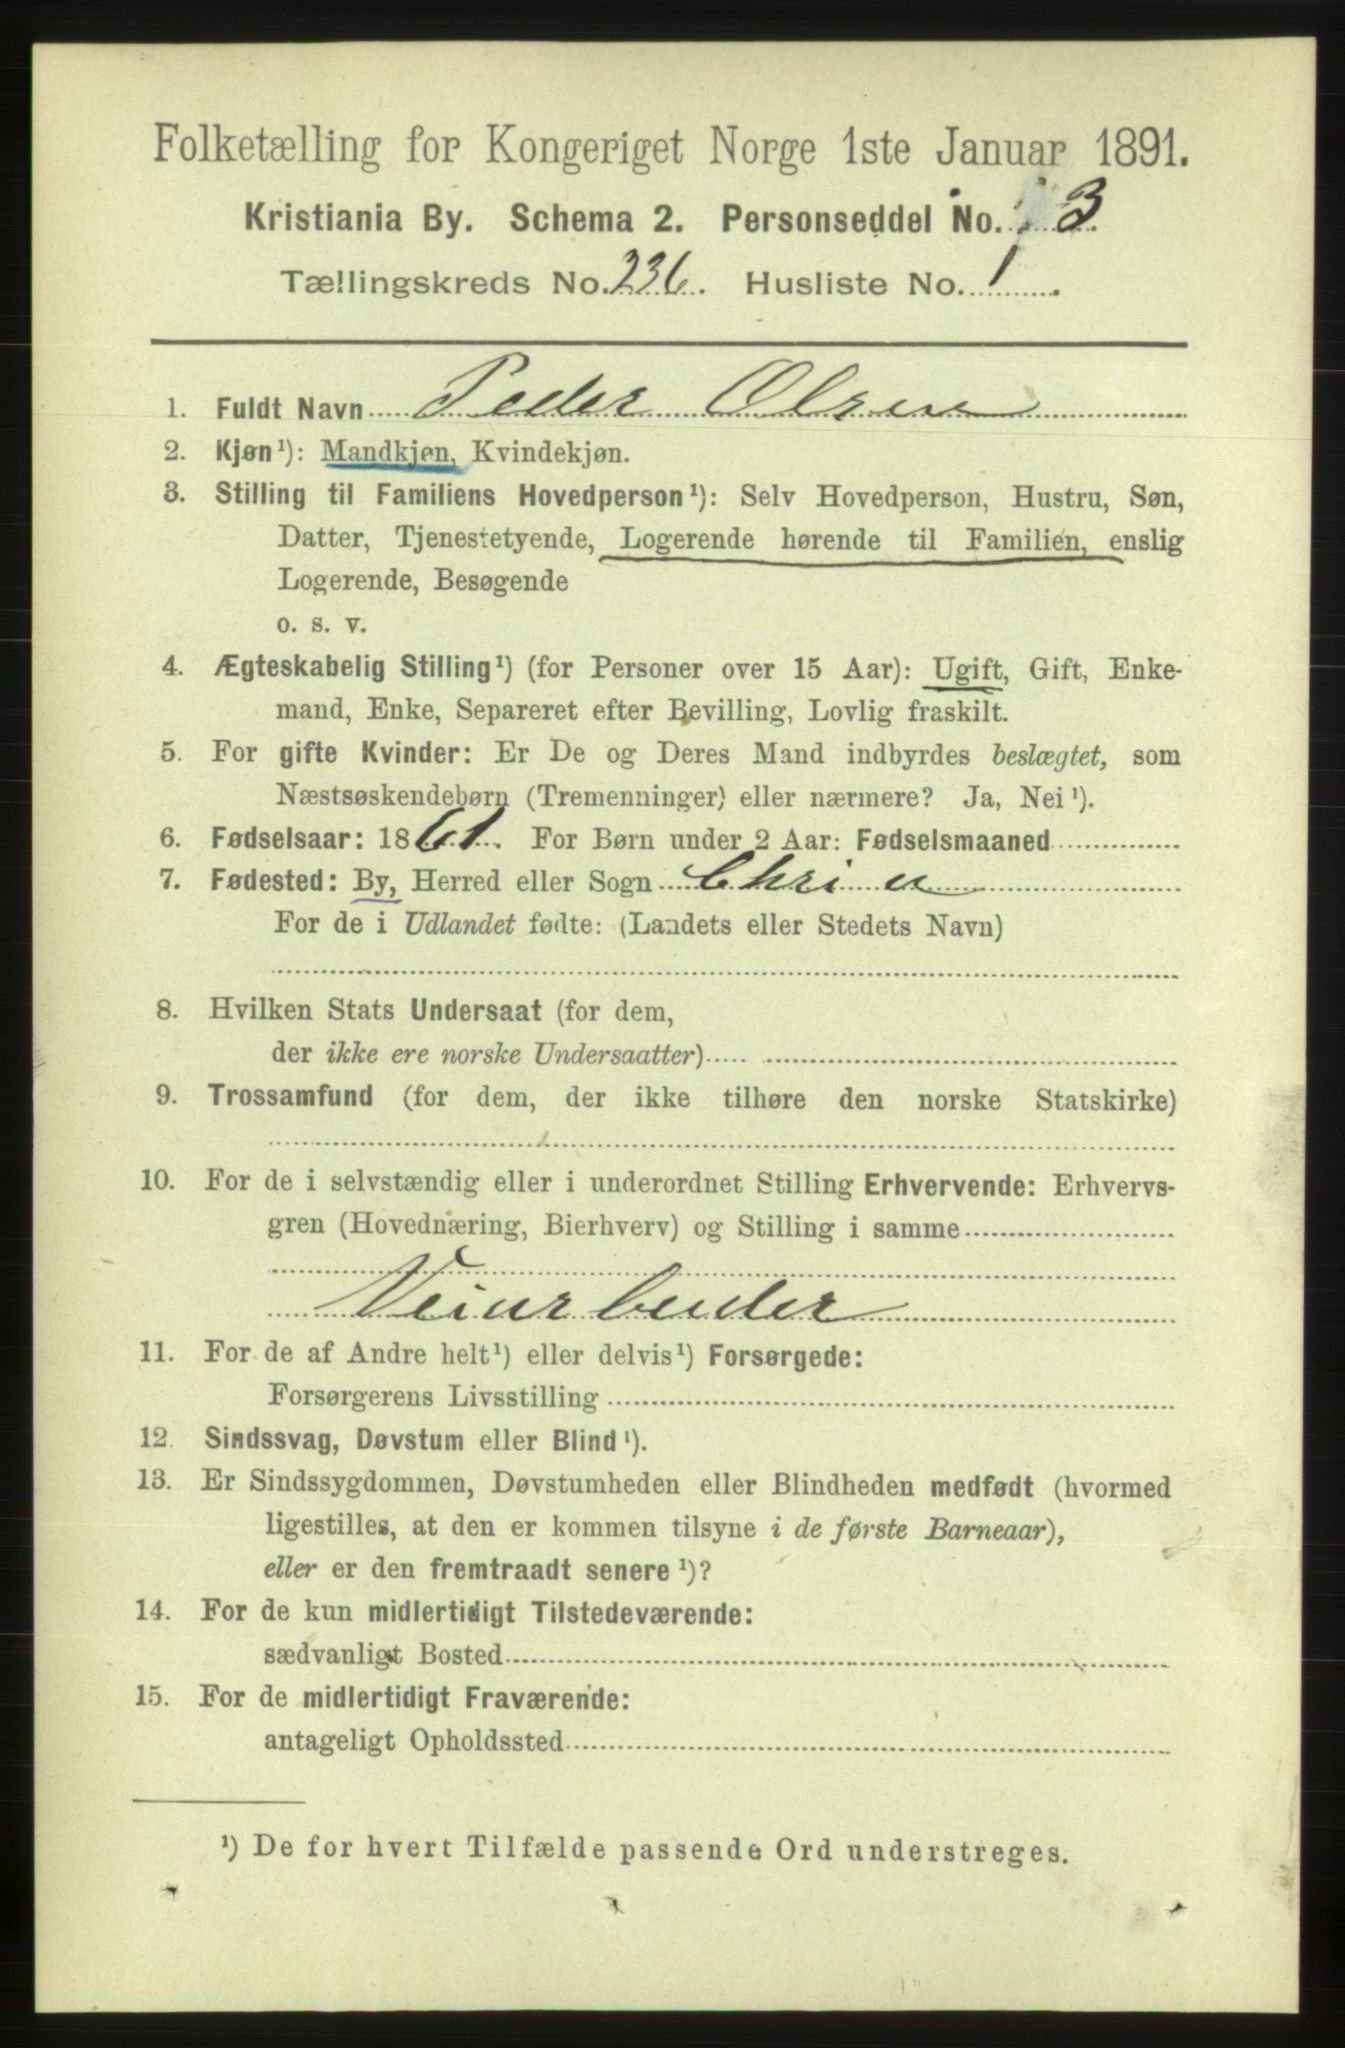 Folketælling for Kongeriget Norge 1ste Januar 1891.
Kristiania By. Schema 2. Personseddel No. 3
Tællingskreds No. 236. Husliste No. 1.
1. Fuldt Navn Peder Olsen
2. Kjøn¹): Mandkjøn, Kvindekjøn.
3. Stilling til Familiens Hovedperson¹): Selv Hovedperson, Hustru, Søn,
Datter, Tjenestetyende, Logerende hørende til Familien, enslig
Logerende, Besøgende
o. s. v.
4. Ægteskabelig Stilling¹) (for Personer over 15 Aar): Ugift, Gift, Enke-
mand, Enke, Separeret efter Bevilling, Lovlig fraskilt.
5. For gifte Kvinder: Er De og Deres Mand indbyrdes beslægtet, som
Næstsøskendebørn (Tremenninger) eller nærmere? Ja, Nei¹).
6. Fødselsaar: 1861. For Børn under 2 Aar: Fødselsmaaned
7. Fødested: By, Herred eller Sogn Chria
For de i Udlandet fødte: (Landets eller Stedets Navn)
8. Hvilken Stats Undersaat (for dem,
der ikke ere norske Undersaatter)
9. Trossamfund (for dem, der ikke tilhøre den norske Statskirke)
10. For de i selvstændig eller i underordnet Stilling Erhvervende: Erhvervs-
gren (Hovednæring, Bierhverv) og Stilling i samme
Veiarbeider
11. For de af Andre helt¹) eller delvis¹) Forsørgede:
Forsørgerens Livsstilling
12. Sindssvag, Døvstum eller Blind¹).
13. Er Sindssygdommen, Døvstumheden eller Blindheden medfødt (hvormed
ligestilles, at den er kommen tilsyne i de første Barneaar),
eller er den fremtraadt senere¹)?
14. For de kun midlertidigt Tilstedeværende:
sædvanligt Bosted
15. For de midlertidigt Fraværende:
antageligt Opholdssted
¹) De for hvert Tilfælde passende Ord understreges.